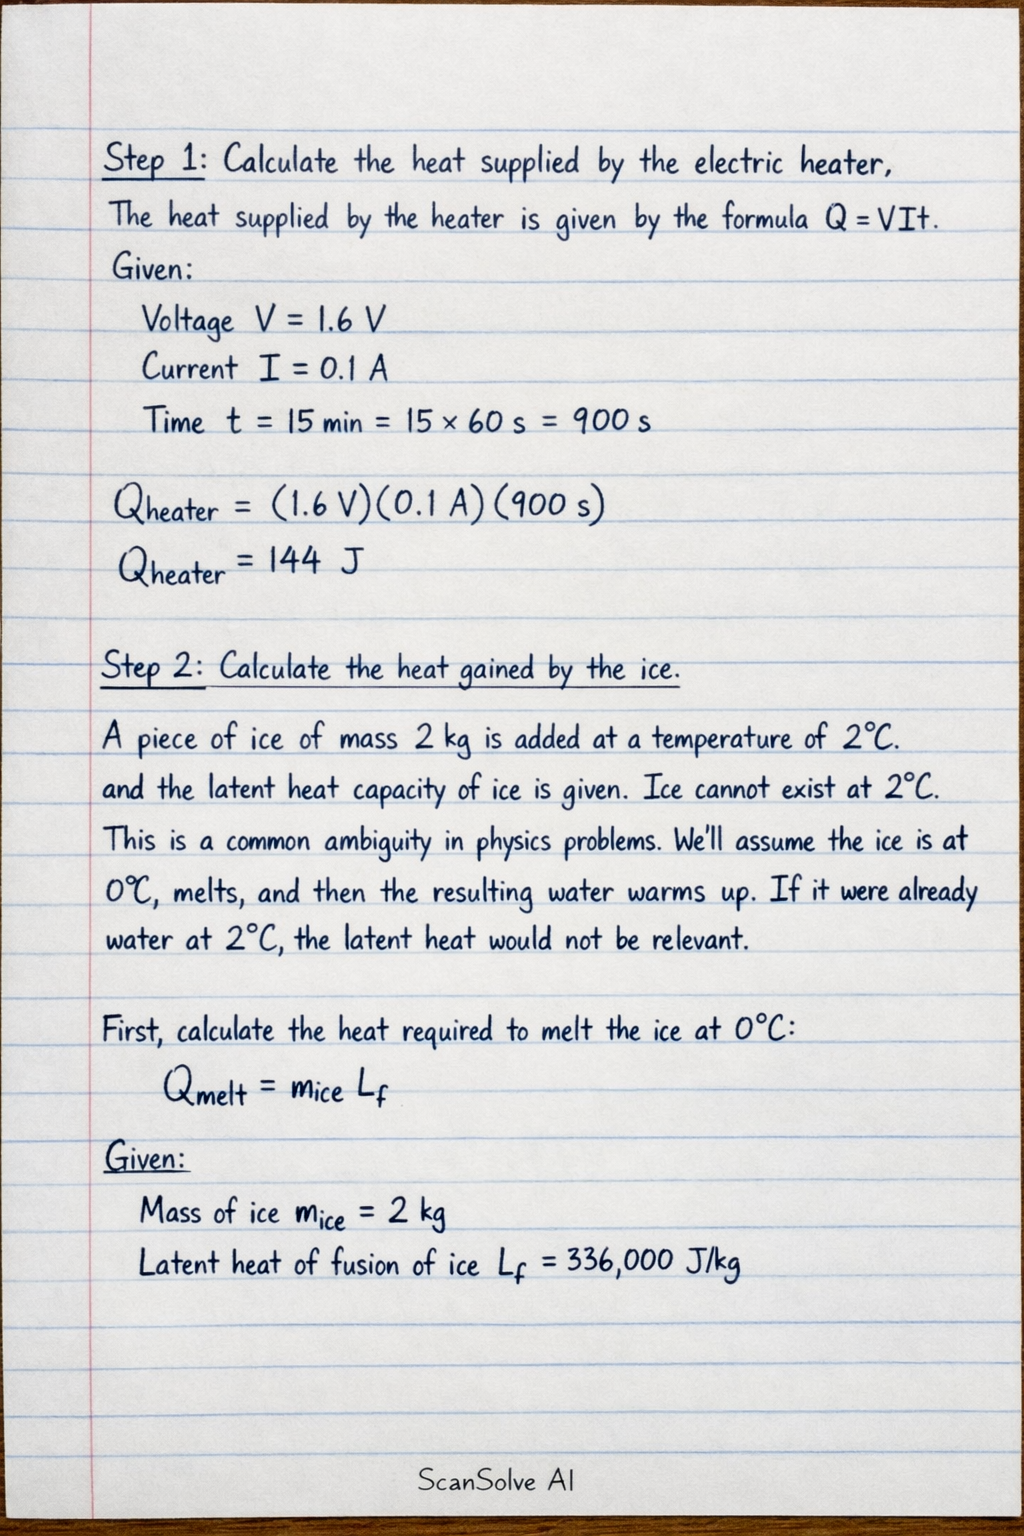 Step 1: Calculate the heat supplied by the electric heater,
The heat supplied by the heater is given by the formula Q = VIt.
Given:
Voltage V = 1.6 V
Current I = 0.1 A
Time t = 15 min = 15 × 60 s = 900 s
Qheater = (1.6 V)(0.1 A)(900 s)
Qheater = 144 J
Step 2: Calculate the heat gained by the ice.
A piece of ice of mass 2 kg is added at a temperature of 2°C.
and the latent heat capacity of ice is given. Ice cannot exist at 2°C.
This is a common ambiguity in physics problems. We'll assume the ice is at
0°C, melts, and then the resulting water warms up. If it were already
water at 2°C, the latent heat would not be relevant.
First, calculate the heat required to melt the ice at 0°C:
Qmelt = mice Lf
Given:
Mass of ice mice = 2 kg
Latent heat of fusion of ice Lf = 336,000 J/kg
ScanSolve AI